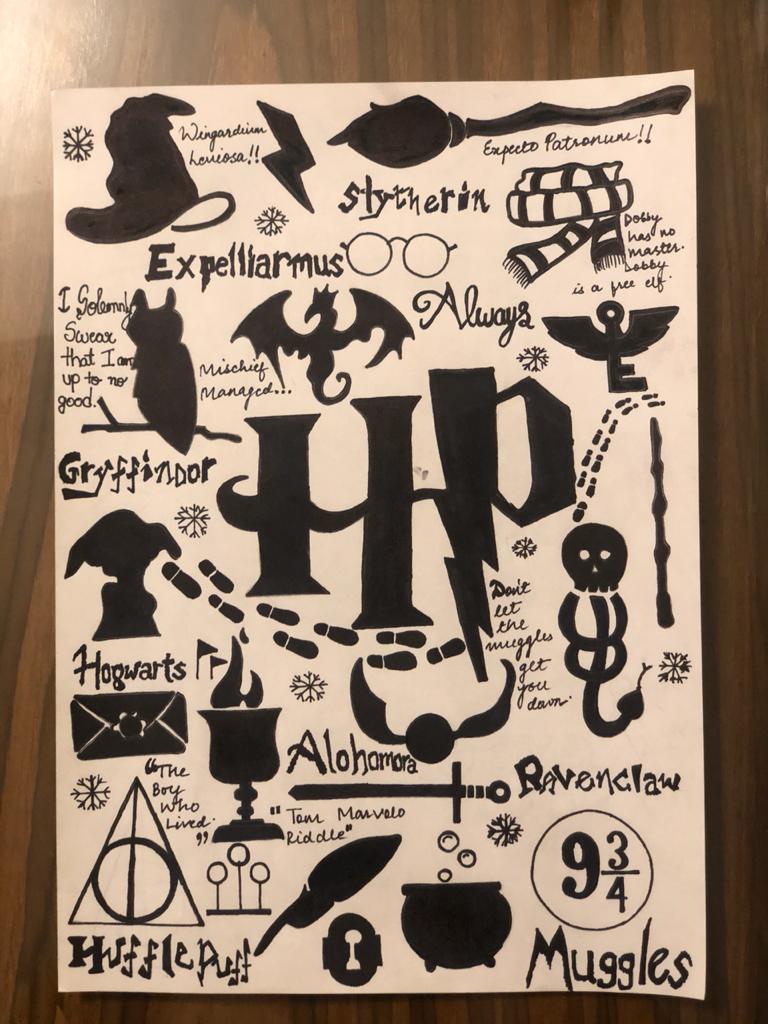 Wingardium
Leviosa!!
Expecto Patronum!!
Slytherin
Dobby
has no
master.
Dobby
is a free elf.
Expelliarmus
Always
I Solemnly
Swear
that I am
up to no
good.
Mischief
Managed...
HP
Gryffindor
Don't
let
the
muggles
get
you
down.
Hogwarts
Alohomora
Ravenclaw
"The
Boy
Who
Lived.
"
"Tom Marvolo
Riddle"
9 3/4
HufflePuff
Muggles